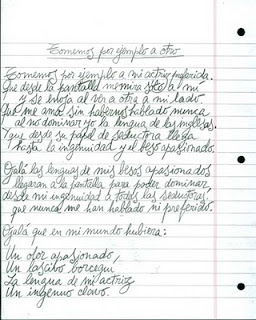 Tomemos por ejemplo a otro
Tomemos por ejemplo a mi actriz preferida.
Que desde la pantalla me mira sólo a mí
y se enoja al ver a otra a mi lado.
Que me ama sin habernos hablado nunca
al no dominar yo la lengua de las inglesas.
Y que desde su papel de seductora llega
hasta la ingenuidad y el beso apasionado.
Ojalá las lenguas de mis besos apasionados
llegaran a la pantalla para poder dominar,
desde mi ingenuidad a todas las seductoras
que nunca me han hablado ni preferido.
Ojalá que en mi mundo hubiera:
Un olor apasionado,
Un lascivo borceguí
La lengua de mi actriz
Un ingenuo clavo.